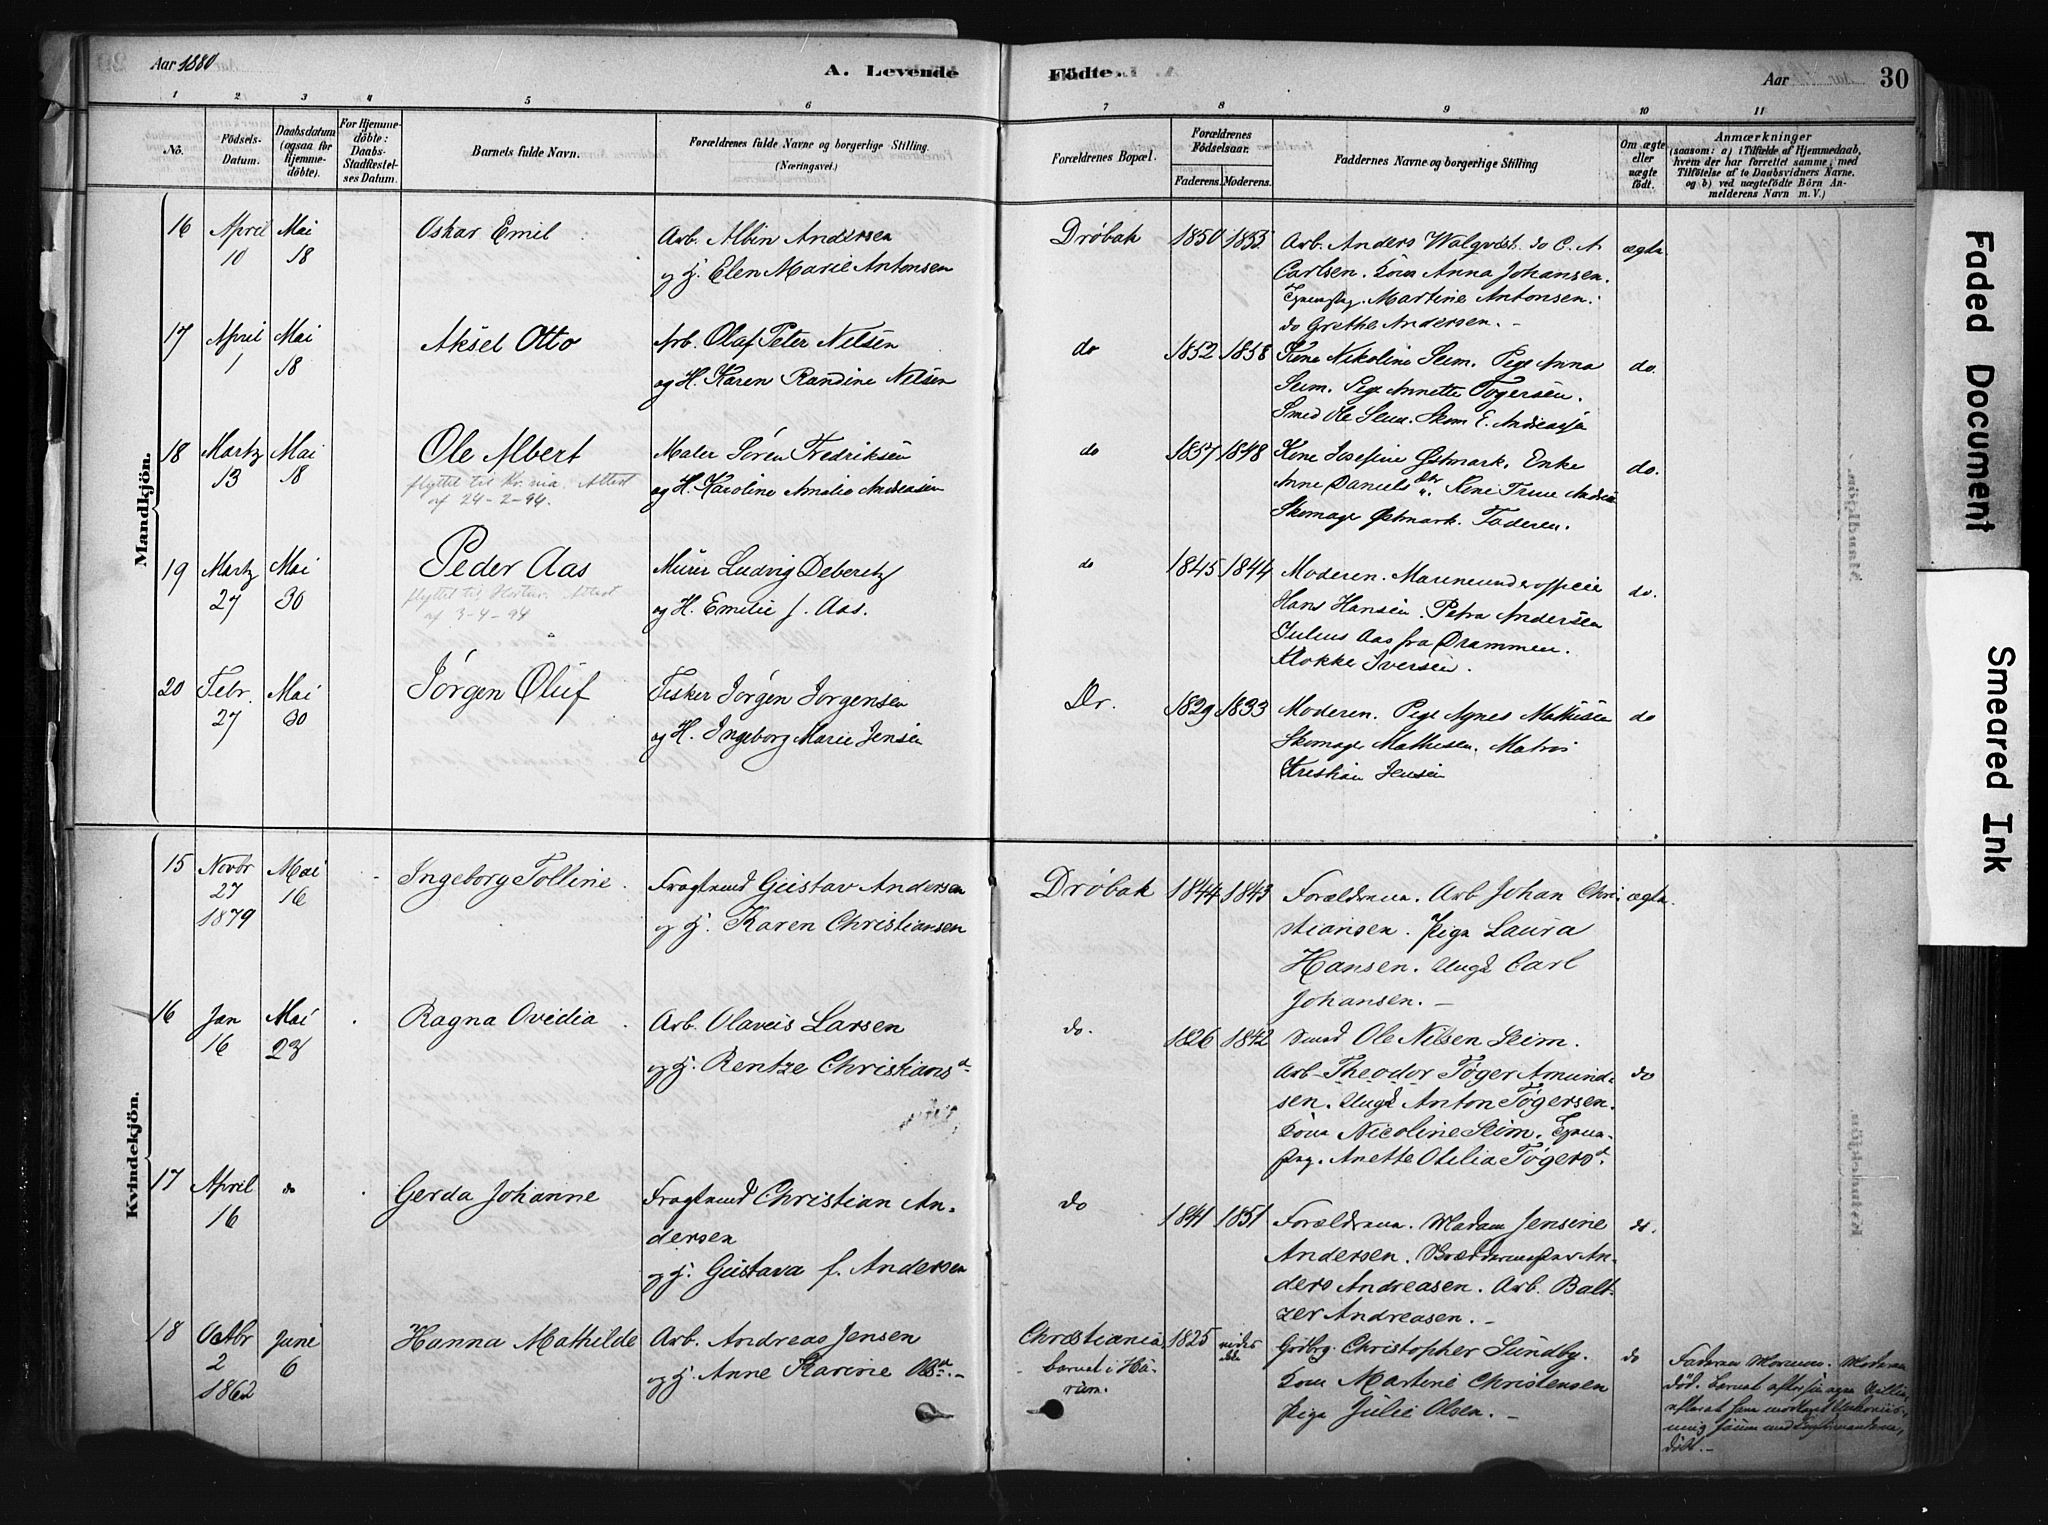 Aar 1880
A. Levende
Födte.
Aar
30
1 2 3 4 5 6 7 8 9 10 11
No.
Födsels-
Datum.
Daabsdatum
(ogsaa for
Hjemme-
döbte).
For Hjemme-
döbte:
Daabs-
Stadfæstel-
ses Datum.
Barnets fulde Navn.
Forældrenes fulde Navne og borgerlige Stilling.
(Næringsvei.)
Forældrenes Bopæl.
Forældrenes
Födselsaar.
Faderens. Moderens.
Faddernes Navne og borgerlige Stilling
Om ægte
eller
uægte
födt.
Anmærkninger
(saasom: a) i Tilfælde af Hjemmedaab,
hvem der har forrettet samme, med
Tilföielse af to Daabsvidners Navne.
og b) ved uægtefödte Börn An-
melderens Navn m. V.)
Mandkjön.
16 April Mai Oskar Emil Arb. Albin Andersen Drøbak 1850 1855 Arb. Anders Walqvist. do C. A. ægte.
10 18 og H. Elen Marie Antonsen Carlsen. Kone Anna Johansen.
Martine Antonsen.
do Grethe Andersen.
17 April Mai Aksel Otto Arb. Olaf Peter Nilsen do 1852 1858 Kone Nikoline Seim. Pige Anna do.
1 18 og H. Karen Randine Nilsen Seim. Pige Annette Tøgersen.
Smed Ole Seim. Skom E. Andreasen
18 Martz Mai Ole Albert Maler Søren Fredriksen do 1857 1848 Kone Josefine Østmark. Enke do.
13 18 flyttet til Kr.nia. Attest og H. Karoline Amalie Andreasen Anne Daniels dtr. Kone Trine
af 24-2-94. Skomager Østmark. Faderen.
19 Martz Mai Peder Aas Murer Ludvig Deberitz do 1845 1844 Moderen. Marineunderofficer do.
27 30 flyttet til Horten. Attest og H. Emilie f. Aas. Hans Hansen. Petra Andersen
af 3-4-94 Julius Aas fra Drammen.
Klokker Iversen.
20 Febr. Mai Jørgen Oluf Fisker Jørgen Jørgensen Dr. 1829 1833 Moderen. Pige Agnes Mathisen do
27 30 og H. Ingeborg Marie Jensen Skomager Mathisen. Matros
Kristian Jensen
Kvindekjön.
15 Novbr Mai Ingeborg Tolline. Fragtmand Gustav Andersen Drøbak 1844 1843 Forældrene. Arb Johan Chri- ægte.
27 16 og H. Karen Christiansen stiansen. Pige Laura
1879 Hansen. Ungk Carl
Johansen.
16 Jan Mai Ragna Ovedia Arb. Olaves Larsen do. 1826 1842 Smed Ole Nilsen Seim.
16 23 og H. Rentze Christiansd Arb Theodor Tøger Amund- do
sen. Ungk Anton Tøgersen.
Kone Nicoline Seim.
Anette Otilia Tøgersd.
17 April do Gerda Johanne Fragtmand Christian An- do 1841 1851 Forældrene. Madam Jensine do.
16 dersen Andersen. An-
og H. Gustava f. Andersen ders Andreasen. Arb. Balt-
zer Andreasen.
18 Octbr Juni Hanna Mathilde Arb. Andreas Jensen Christiania 1825 Christopher Sundby. do
2 6 og H. Anne Karine barnet i Hu- Kone Martine Christensen
1862 rum. Pige Julie Olsen.
Faderen Mormon. Moderen
død. barnet efter sin egen Villie,
døbt.
Faded Document
Smeared Ink